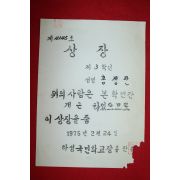 상장
제 3 학년
성명
위의 사람은 본 학년간
개근 하였으므로
이 상장을 줌
1975 년 2 월 24 일
국민학교장